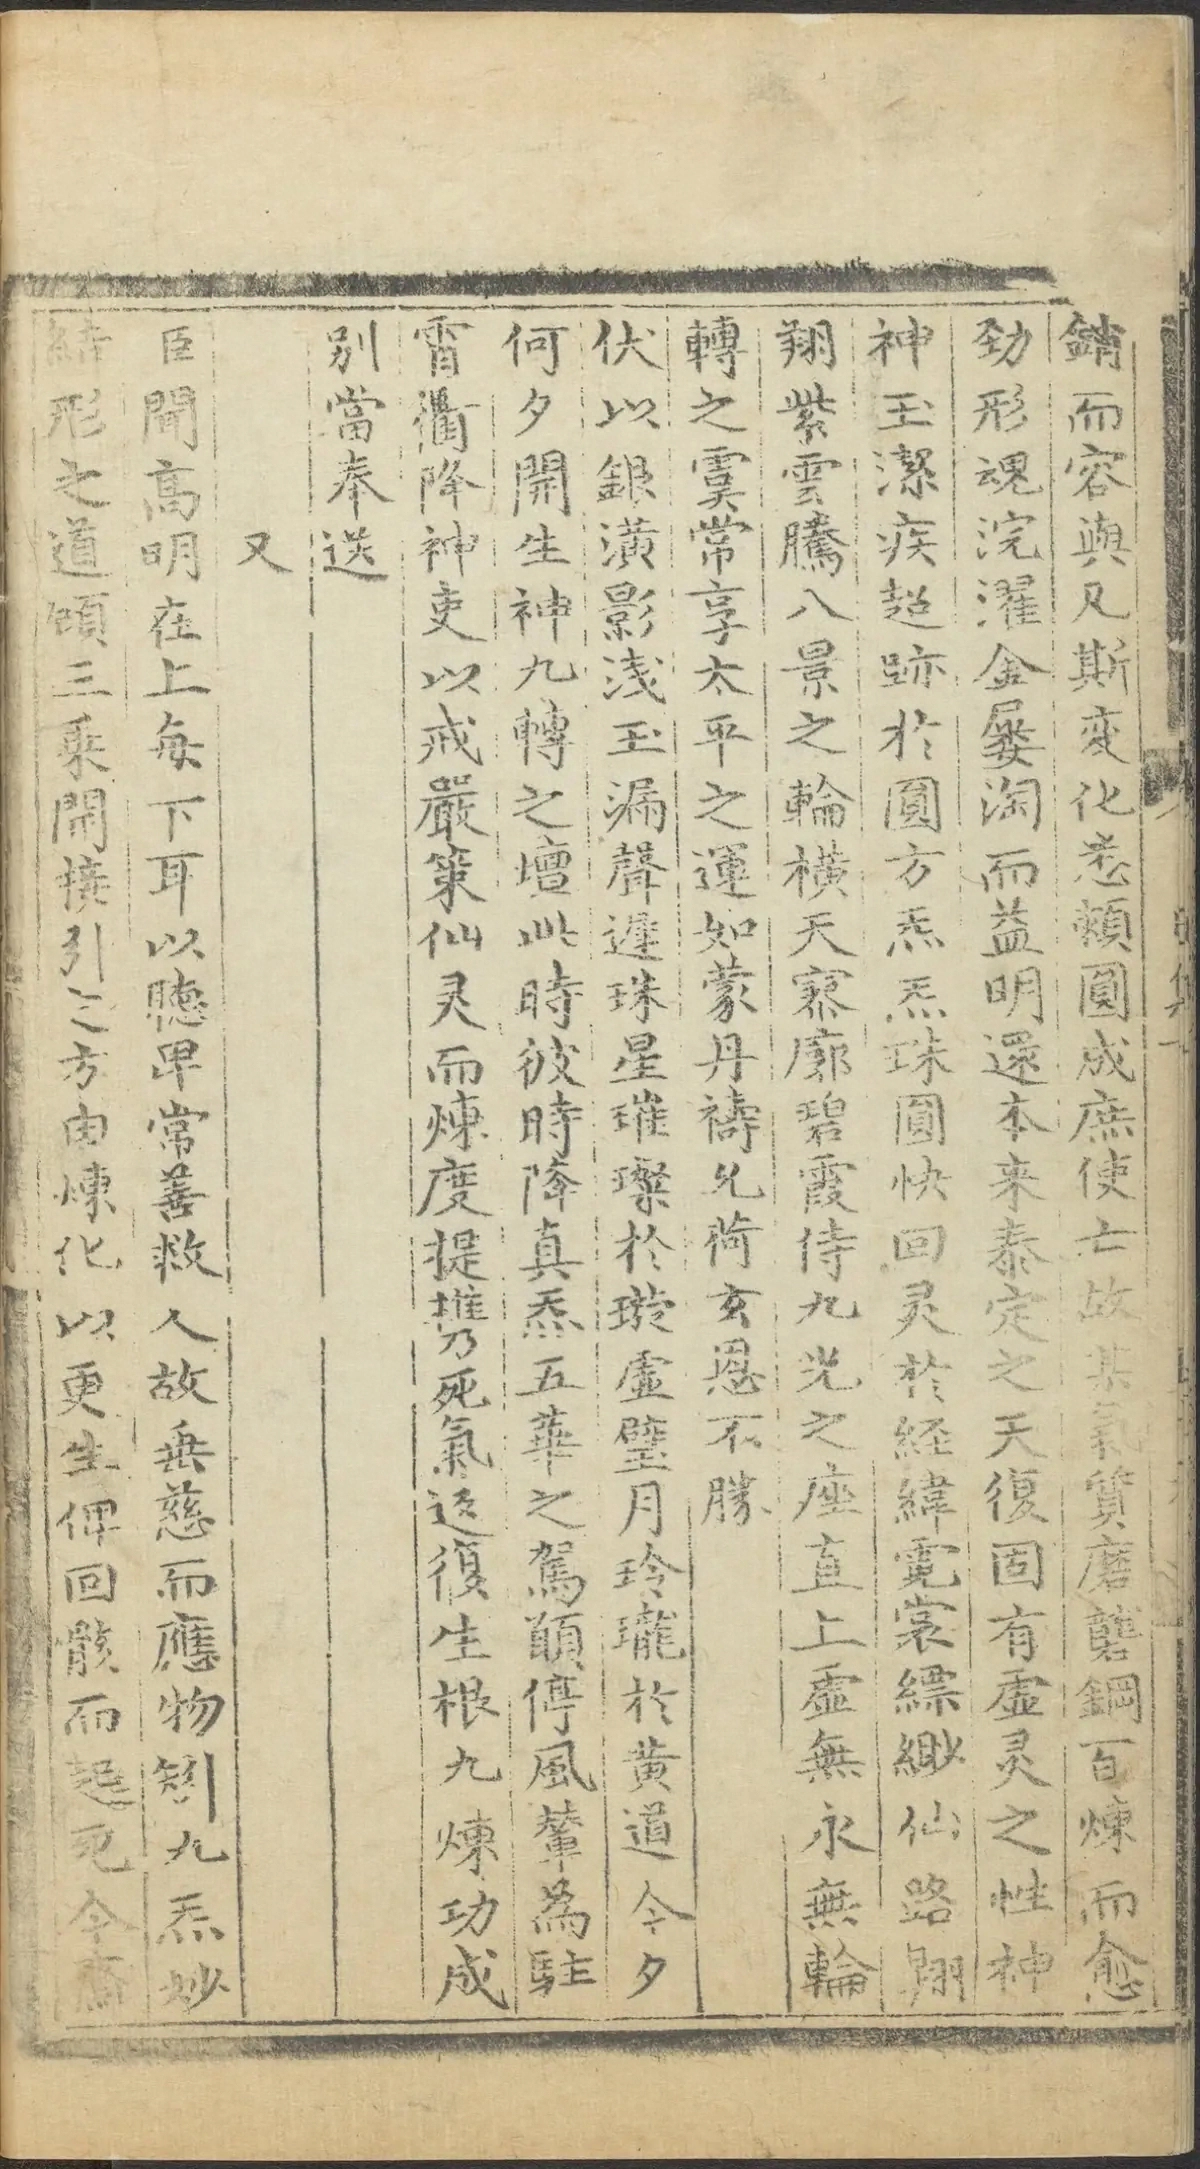 銷而容與及斯变化悉賴圓成庶使亡故某氣質磨礱鋼百煉而愈
劲形魂浣濯金屡淘而益明還本来泰定之天復固有虚灵之性神
神玉潔疾超跡於圓方炁炁珠圓快回灵於経緯霓裳縹緲仙路翔
翔紫雲騰八景之輪橫天寥廓碧霞侍九光之座直上虚無永無輪
轉之虞常享太平之運如蒙丹禱允荷玄恩不勝
伏以銀潢影浅玉漏聲遲珠星璀璨於璇虚璧月玲瓏於黄道今夕
何夕開生神九轉之壇此時彼時降真炁五華之駕願停風輦為駐
霄衢降神吏以戒嚴策仙灵而煉度提携乃死氣返復生根九煉功成
别當奉送
又
臣聞高明在上每下耳以聽卑常善救人故垂慈而應物剏九炁妙
結形之道頒三乗開接引之方由煉化以更生俾回骸而起死今